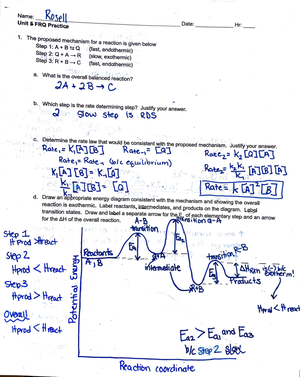 Name: Rosell Date: Hr:
Unit 5 FRQ Practice
1. The proposed mechanism for a reaction is given below
Step 1: A + B ⇆ Q (fast, endothermic)
Step 2: Q + A → R (slow, exothermic)
Step 3: R + B → C (fast, endothermic)
a. What is the overall balanced reaction?
2A + 2B → C
b. Which step is the rate determining step? Justify your answer.
2 slow step is RDS
c. Determine the rate law that would be consistent with the proposed mechanism. Justify your answer.
Rate₁ = K₁[A][B] Rate₋₁ = [Q] Rate₂ = k₂[Q][A]
Rate₁ = Rate₋₁ (b/c equilibrium)
K₁[A][B] = K₋₁[Q]
[A][B] = [Q]
Rate = k[A]²[B]
d. Draw an appropriate energy diagram consistent with the mechanism and showing the overall
reaction is exothermic. Label reactants, intermediates, and products on the diagram. Label
transition states. Draw and label a separate arrow for the Eₐ of each elementary step and an arrow
for the ΔH of the overall reaction.
Step 1
Hprod > Hreact
Step 2
Hprod < Hreact
Step 3
Hprod > Hreact
Overall
Hprod < Hreact
Potential Energy
Reactants
A, B
A-B
transition
transition Q-A
Intermediate
transition R-B
R+B
Products
ΔHrxn
Hprod < Hreact
Ea2 > Ea1 and Ea3
b/c step 2 slow
Reaction coordinate